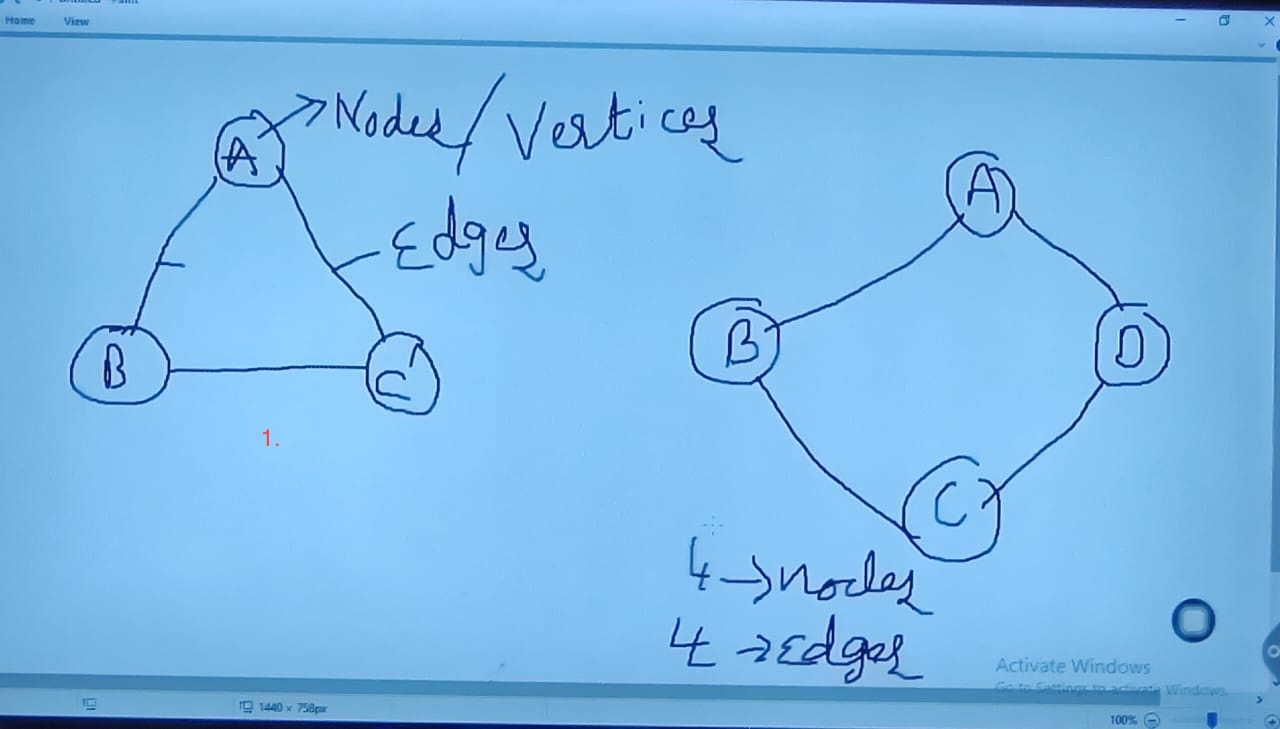 Home View
A → Nodes / Vertices
Edges
B
C
1.
A
B
D
C
4 → Nodes
4 → Edges
Activate Windows
Go to Settings to activate Windows.
1440 × 758px
100%